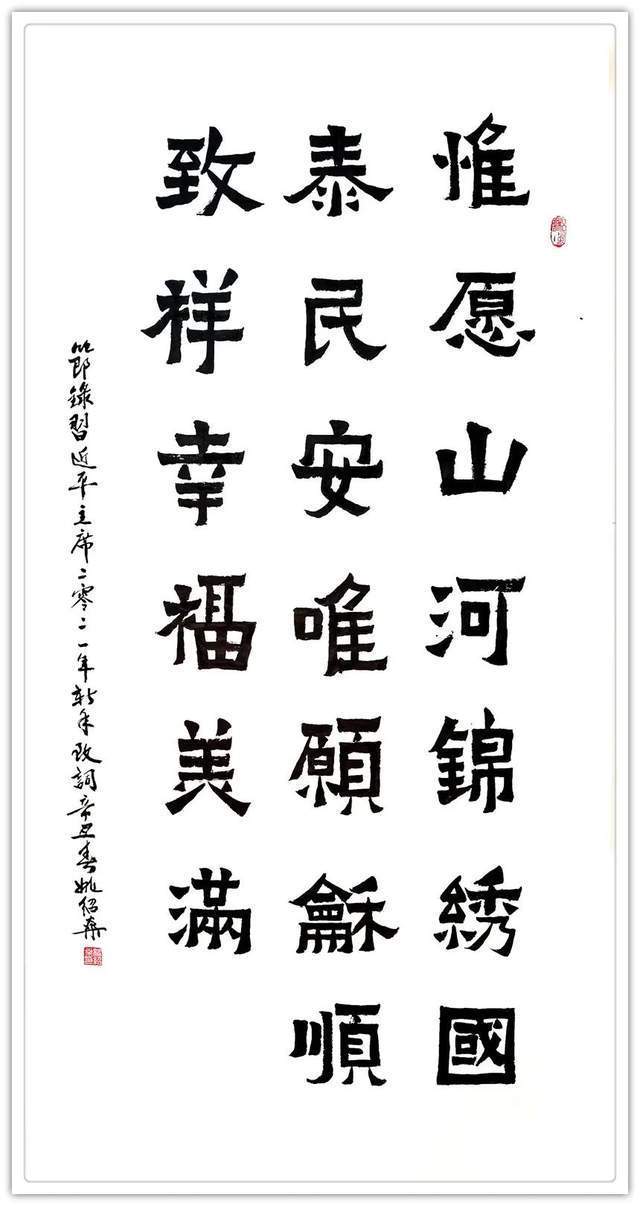 惟愿山河錦綉國
泰民安唯願龢順
致祥幸福美滿
節錄習近平主席二零二一年新年致詞辛丑春姚紹華